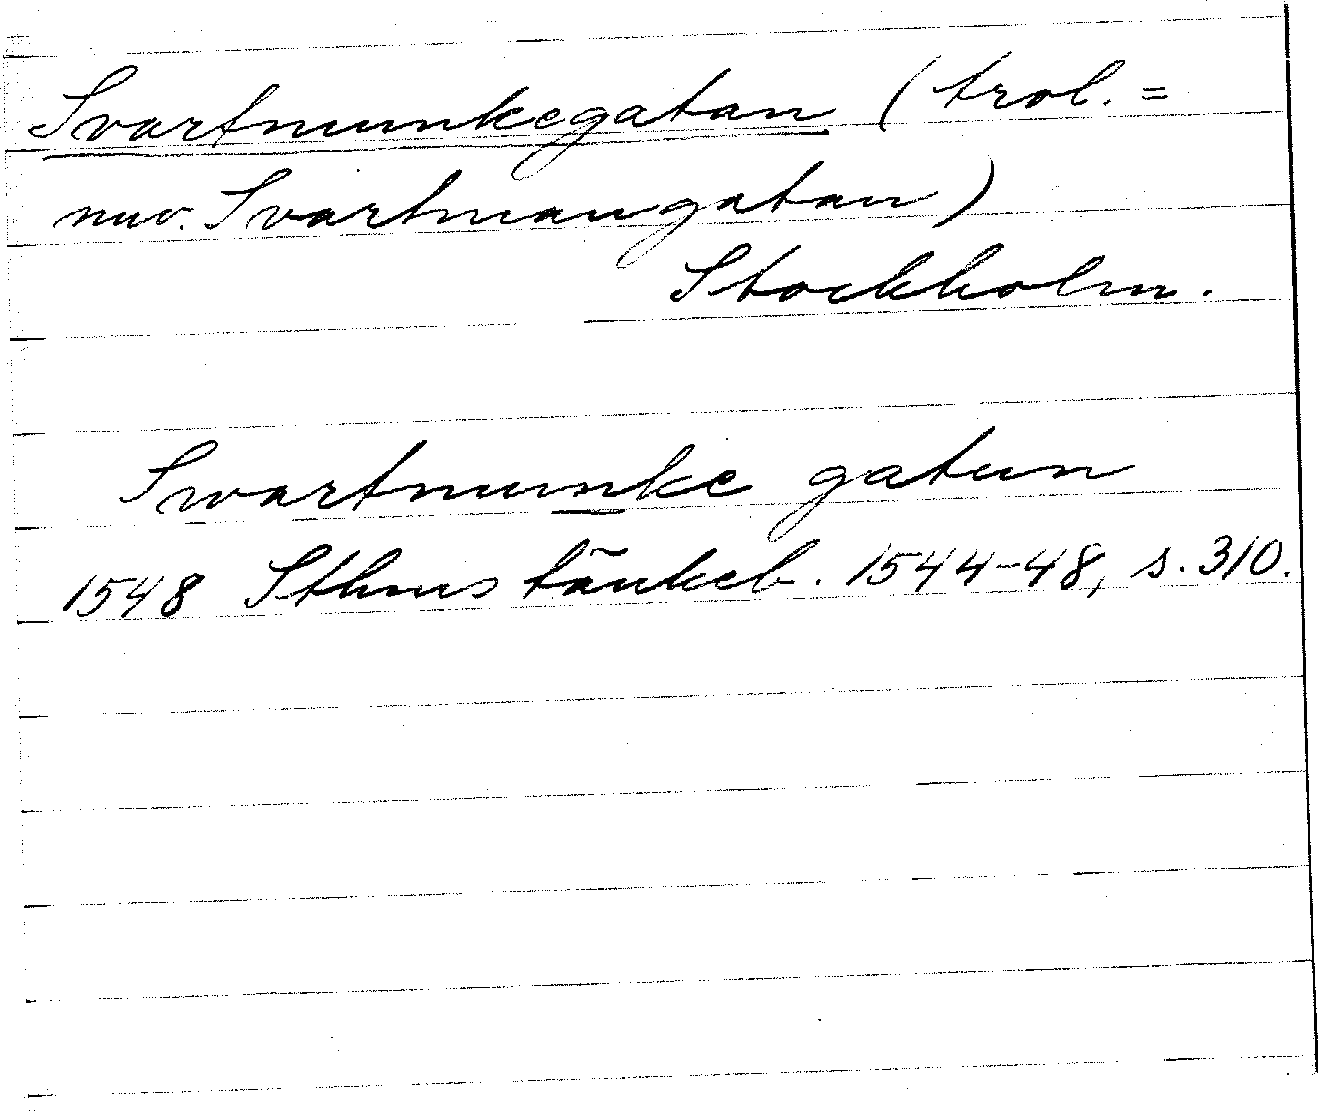 Svartmunkegatan (trol. =
nuv. Svartmangatan)
Stockholm.
Swartmunke gatun
1548 Sthms tänkeb. 1544-48, s. 310.